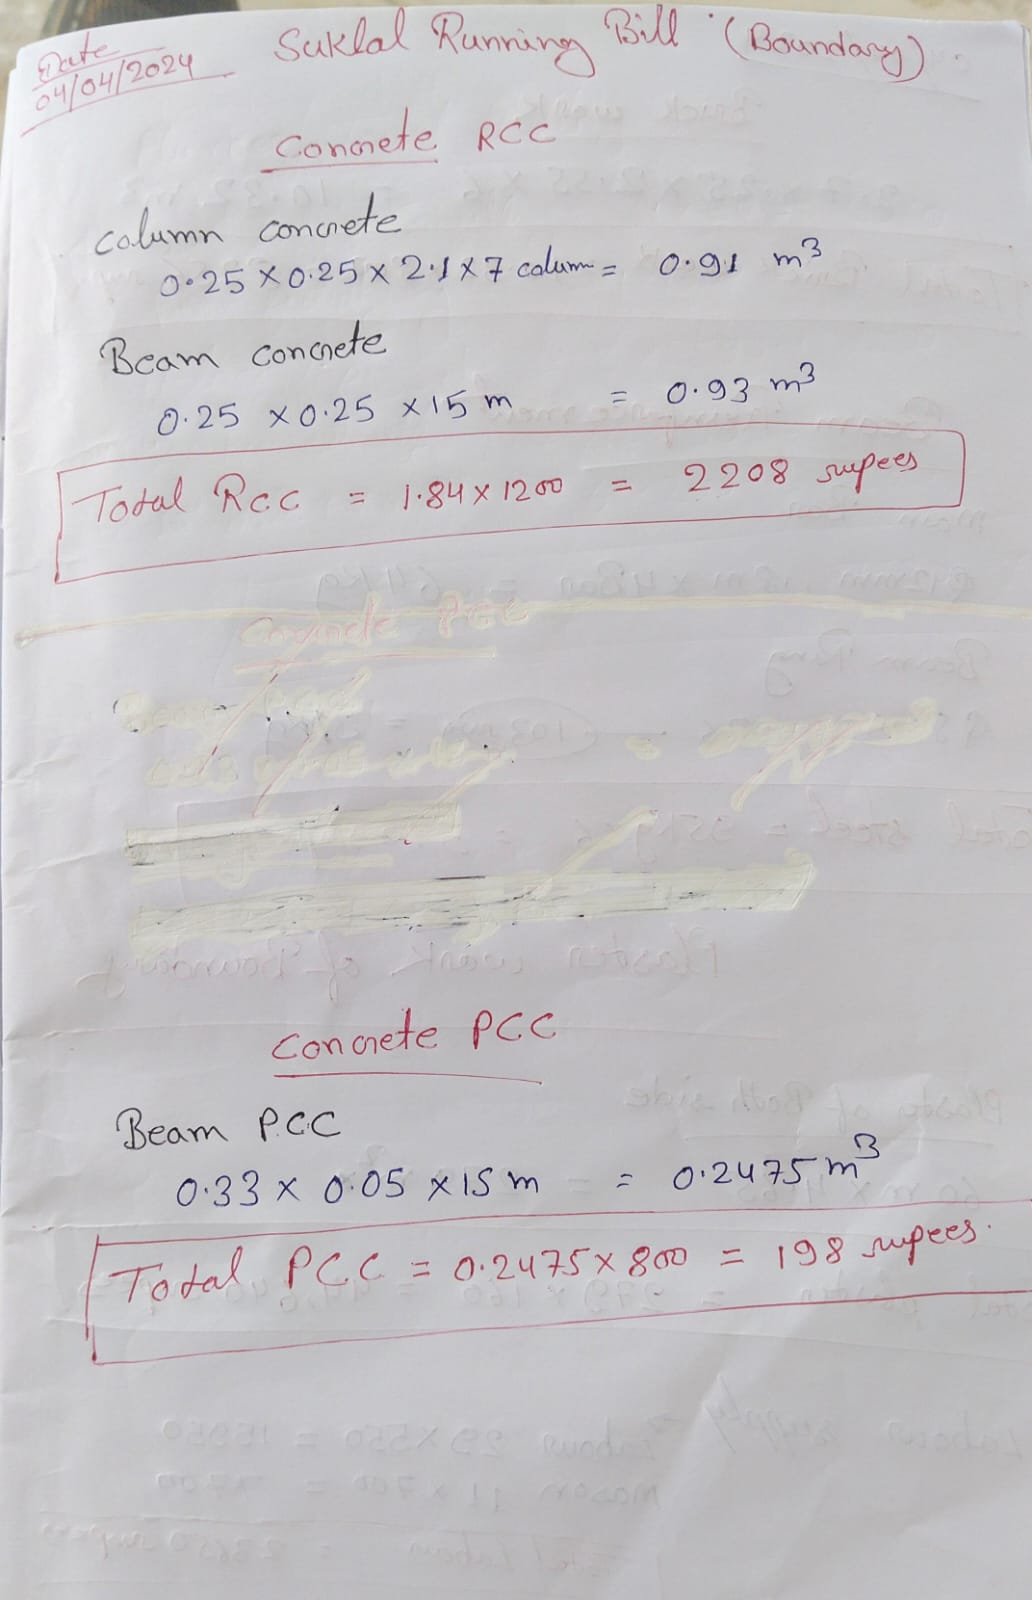 Date
04/04/2024
Suklal Running Bill (Boundary)
Concrete RCC
Column concrete
0.25 x 0.25 x 2.1 x 7 column = 0.91 m³
Beam concrete
0.25 x 0.25 x 15 m = 0.93 m³
Total Rcc = 1.84 x 1200 = 2208 rupees
Concrete PCC
Concrete PCC
Beam P.C.C
0.33 x 0.05 x 15 m = 0.2475 m³
Total PCC = 0.2475 x 800 = 198 rupees.